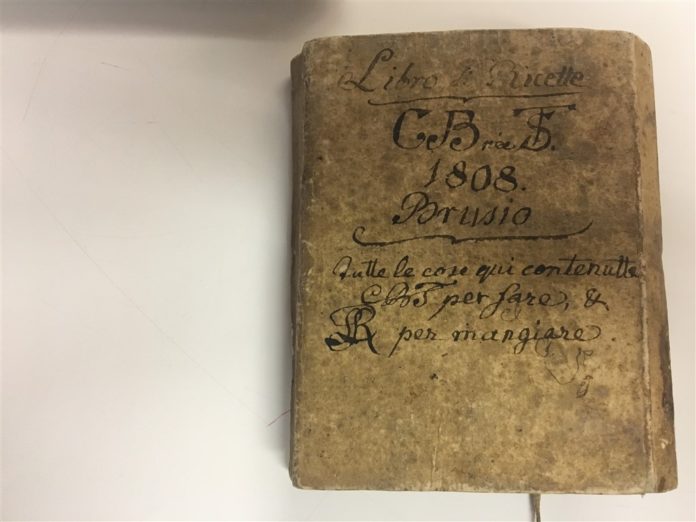 Libro di Ricette
CB
1808.
Brusio
tutte le cose qui contenutte
CBT per fare, &
per mangiare